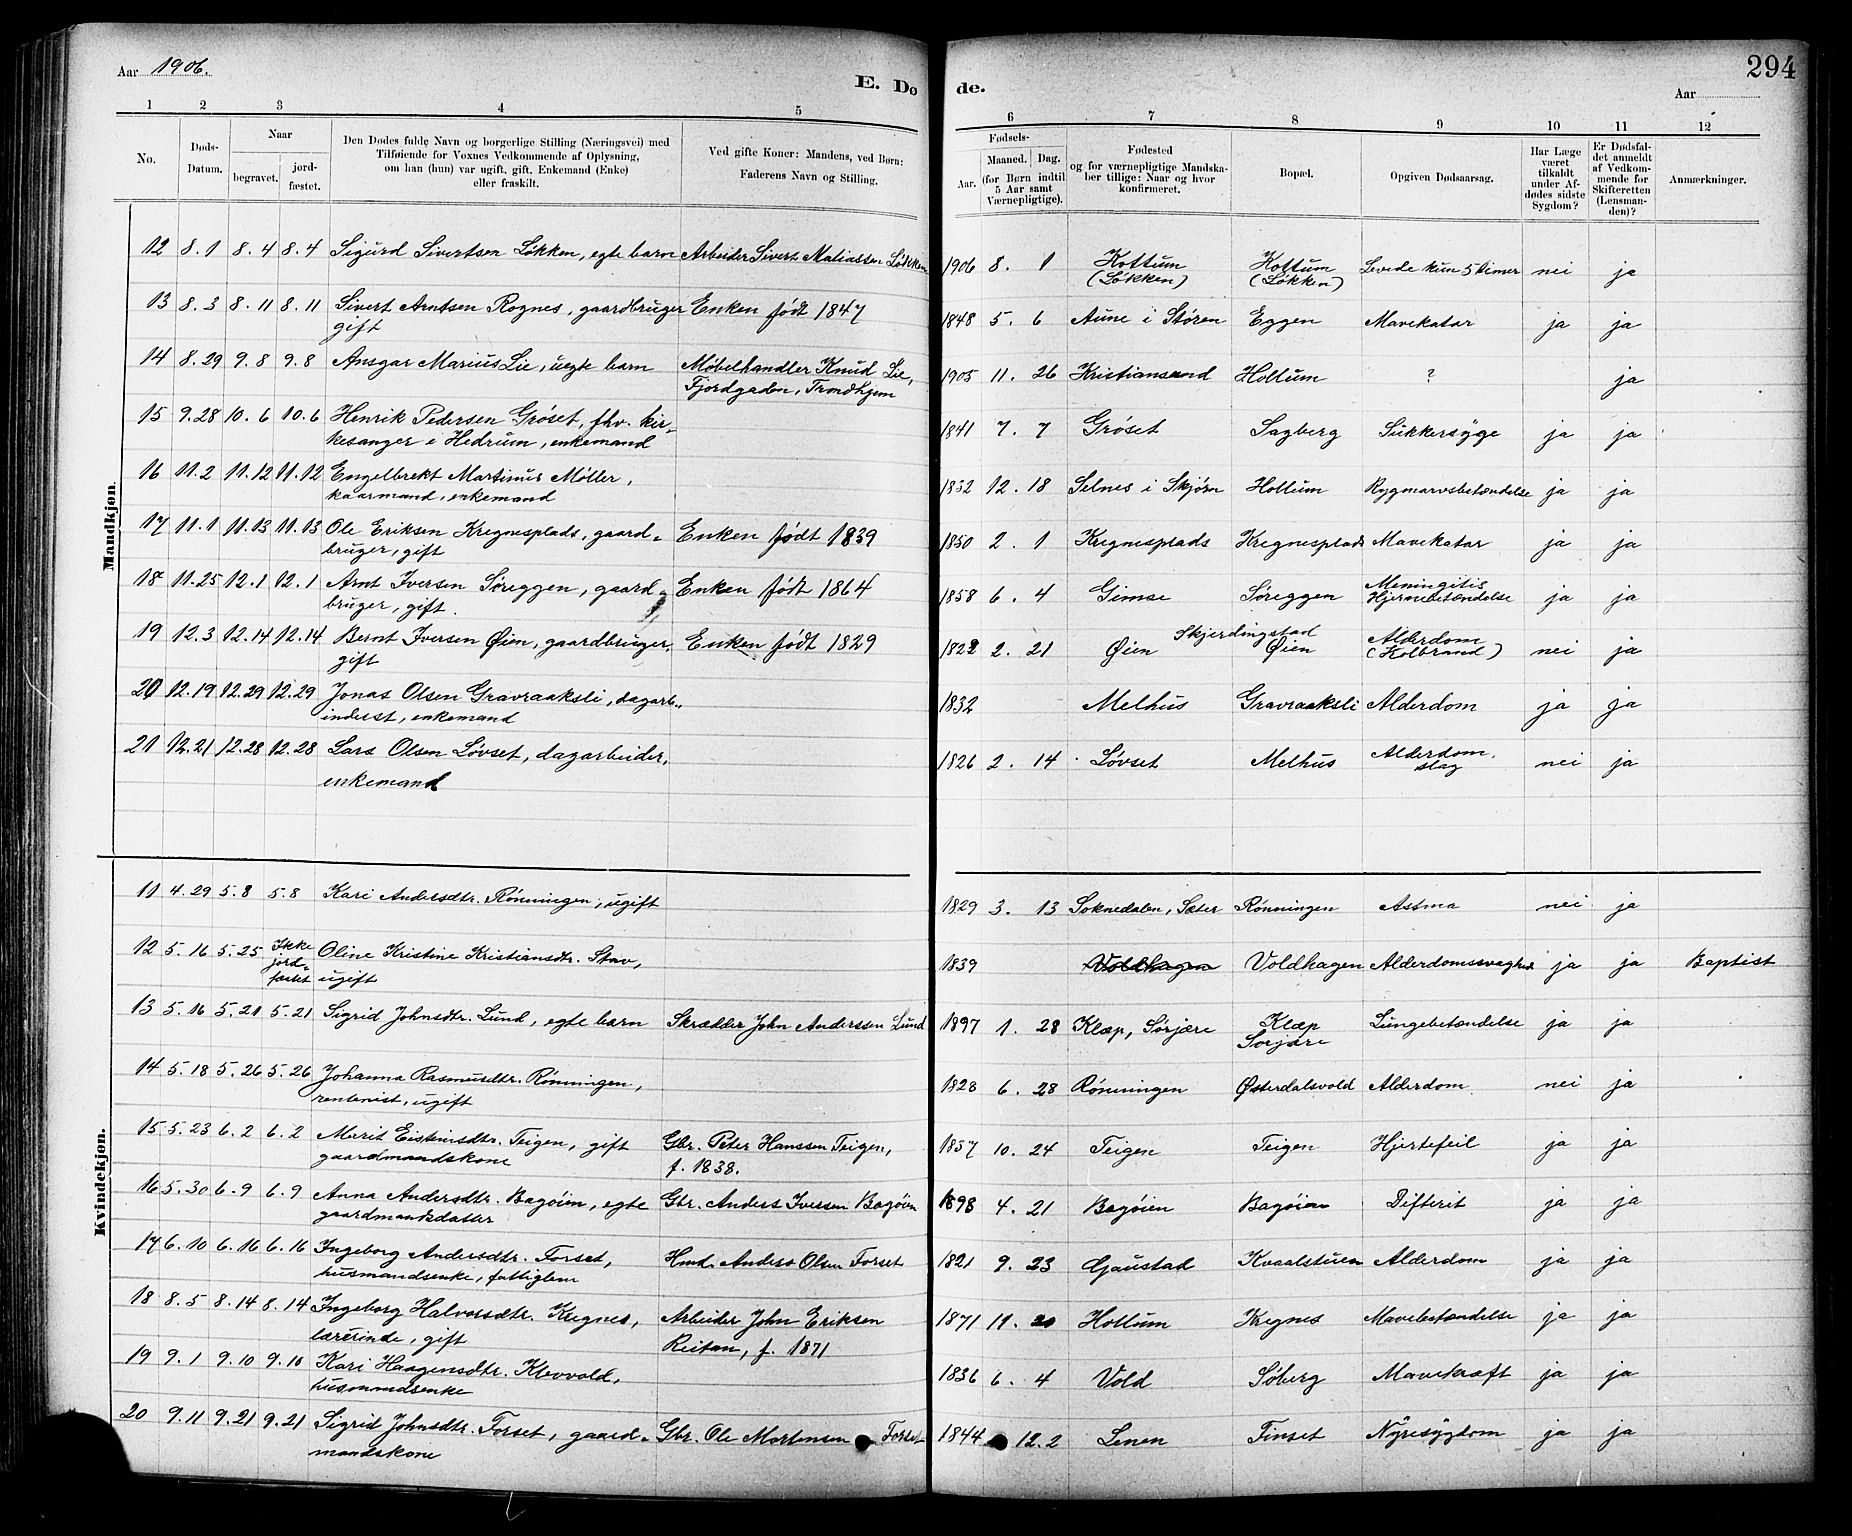 Aar 1906.
E. Do
de.
294
Aar
1 2 3 4 5 6 7 8 9 10 11 12
No.
Døds-
Datum.
Naar
begravet.
jord-
fæstet.
Den Dødes fulde Navn og borgerlige Stilling (Næringsvei) med
Tilføiende for Voxnes Vedkommende af Oplysning,
om han (hun) var ugift, gift, Enkemand (Enke)
eller fraskilt.
Ved gifte Koner: Mandens, ved Børn:
Faderens Navn og Stilling.
Fødsels-
Aar.
Maaned. Dag.
(for Børn indtil
5 Aar samt
Værnepligtige).
Fødested
og for værnepligtige Mandska-
ber tillige: Naar og hvor
konfirmeret.
Bopæl.
Opgiven Dødsaarsag.
Har Læge
været
tilkaldt
under Af-
dødes sidste
Sygdom?
Er Dødsfal-
det anmeldt
af Vedkom-
mende for
Skifteretten
(Lensman-
den)?
Anmærkninger.
Mandkjøn.
12 8.1 8.4 8.4 Sigurd Sivertsen Løkken, egte barn Arbeider Sivert Matiassen Løkken 1906 8. 1 Kottum Kottum Levede kun 5 timer nei ja
(Løkken) (Løkken)
13 8.3 8.11 8.11 Sivert Arntsen Rognes, gaardbruger Enken født 1847 1848 5. 6 Aune i Støren Eggen Mavekatar ja ja
gift
14 8.29 9.8 9.8 Ansgar Marius Lie, uegte barn Møbelhandler Knud Lie, 1905 11. 26 Kristiansund Hollum ? ja
Fjordgaden, Trondhjem
15 9.28 10.6 10.6 Henrik Pedersen Grøset, fhv. kir- 1841 7. 7 Grøset Sagberg Sukkersyge ja ja
kesanger i Hedrum, enkemand
16 11.2 11.12 11.12 Engelbrekt Martinus Møller, 1832 12. 18 Selnes i Skjørn Hollum Rygmarvsbetændelse ja ja
kaarmand, enkemand
17 11.1 11.13 11.13 Ole Eriksen Kregnesplads, gaard- Enken født 1839 1850 2. 1 Kregnesplads Kregnesplads Mavekatar ja ja
bruger, gift
18 11.25 12.1 12.1 Arnt Iversen Søreggen, gaard- Enken født 1864 1858 6. 4 Gimse Søreggen Meningitis ja ja
bruger, gift. Hjernebetændelse
19 12.3 12.14 12.14 Bernt Iversen Øien, gaardbruger, Enken født 1829 1822 2. 21 Øien Skjerdingstad Øien Alderdom nei ja
gift (Kolbrand)
20 12.19 12.29 12.29 Jonas Olsen Gravraaksli, dagarb., 1832 Melhus Gravraaksli Alderdom ja ja
inderst, enkemand
21 12.21 12.28 12.28 Lars Olsen Løvset, dagarbeider, 1826 2. 14 Løvset Melhus Alderdom, nei ja
enkemand slag
Kvindekjøn.
11 4.29 5.8 5.8 Kari Andersdtr. Rønningen, ugift 1829 3. 13 Soknedalen, Sæter Rønningen Astma nei ja
12 5.16 5.25 Ikke Oline Kristine Kristiansdtr. Stav, 1839 Voldhagen Voldhagen Alderdomssvaghed ja ja Baptist
jord-
fæstet ugift
13 5.16 5.21 5.21 Sigrid Johnsdtr. Lund, egte barn Skrædder John Anderssen Lund 1897 1. 28 Klæp, Sørjære Klæp Lungebetændelse ja ja
Sørjære
14 5.18 5.26 5.26 Johanna Rasmusdtr. Rønningen, 1828 6. 28 Rønningen Østerdalsvold Alderdom nei ja
rentenist, ugift
15 5.23 6.2 6.2 Marit Eisteinsdtr. Teigen, gift Gbr. Peter Hanssen Teigen, 1837 10. 24 Teigen Teigen Hjertefeil ja ja
gaardmandskone f. 1838.
16 5.30 6.9 6.9 Anna Andersdtr. Bagøien, egte Gbr. Anders Iversen Bagøien 1898 4. 21 Bagøien Bagøien Difterit ja ja
gaardmandsdatter
17 6.10 6.16 6.16 Ingeborg Andersdtr. Forset, Hmd. Anders Olsen Forset 1821 9. 23 Gaustad Kvaalstuen Alderdom ja ja
husmandsenke, fattiglem
18 8.5 8.14 8.14 Ingeborg Halvorsdtr. Kregnes, Arbeider John Eriksen 1871 11. 20 Hollum Kregnes Mavebetændelse ja ja
lærerinde, gift Reitan, f. 1871
19 9.1 9.10 9.10 Kari Haagensdtr. Klevvold, 1836 6. 4 Vold Søberg Mavekræft ja ja
husmandsenke
20 9.11 9.21 9.21 Sigrid Johnsdtr. Forset, gaard- Gbr. Ole Mortensen Forset 1844 12.2 Lenen Finset Nyresygdom ja ja
mandskone